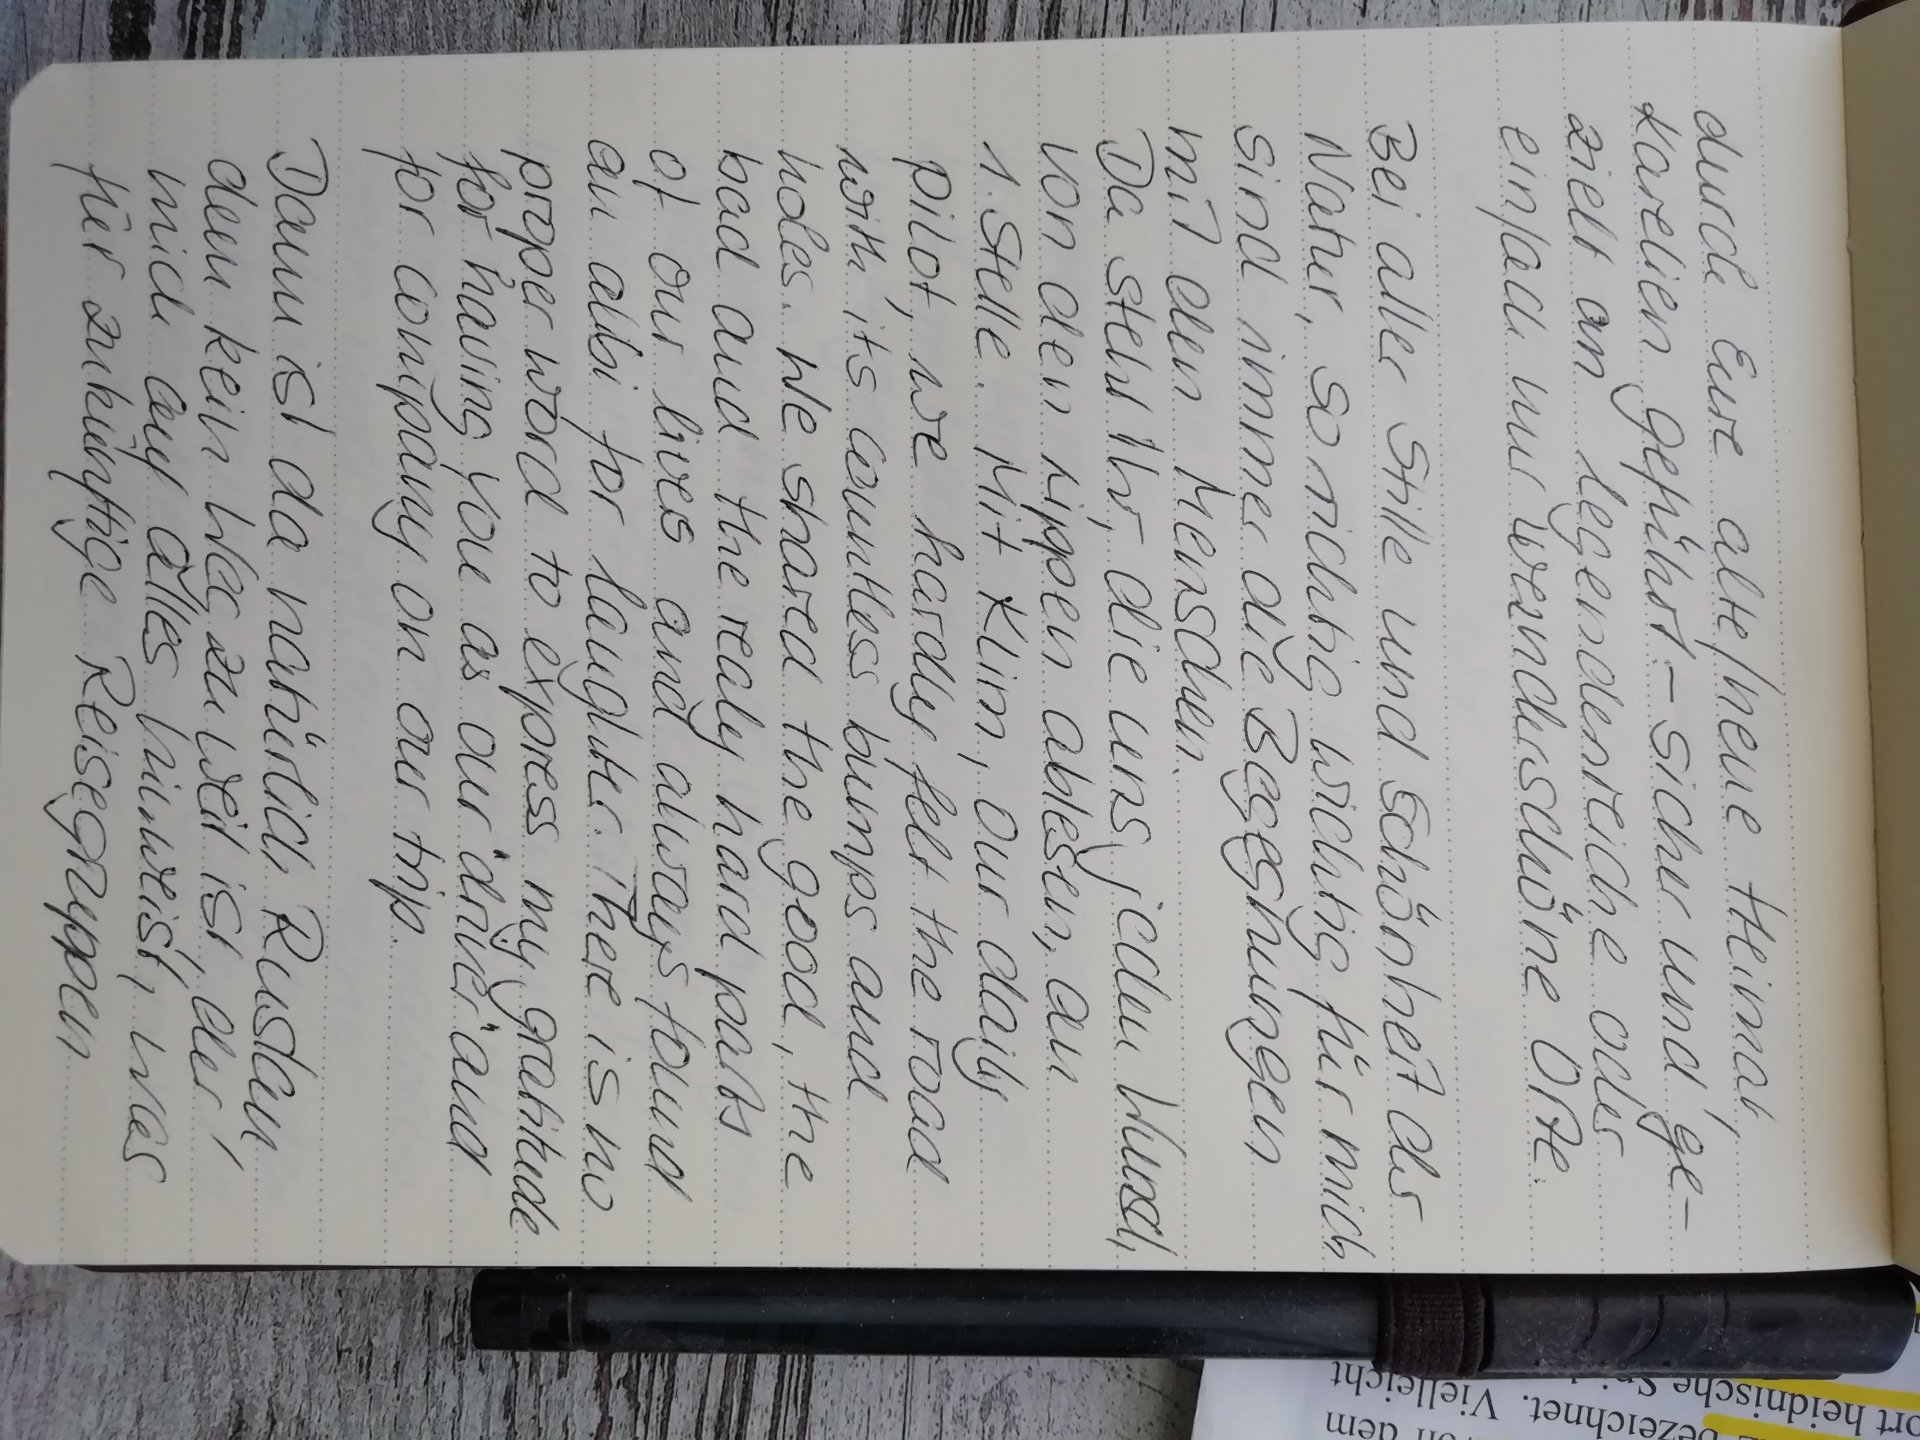 durch Eure alte/neue Heimat,
Karelien geführt – sicher und ge-
zielt an legendenreiche oder
einfach nur wunderschöne Orte.
Bei aller Stille und Schönheit der
Natur, so richtig wichtig für mich
sind immer die Begegnungen
mit den Menschen.
Da steht Ihr, die uns jeden Wunsch
von den Lippen ablesen, an
1. Stelle. Mit Klim, our daily
pilot, we hardly felt the road
with its countless bumps and
holes. We shared the good, the
bad and the realy hard parts
of our lives and always found
an abbi for laughter. There is no
proper word to expres my gratitude
for having you as our "driver" and
for company on our trip.
Dann ist da natürlich Rustan
dem kein Weg zu weit ist, der
mich auf alles hinweist, was
für zukünftige Reisegruppen
ort heidnische
bezeichnet. Vielleicht
von dem